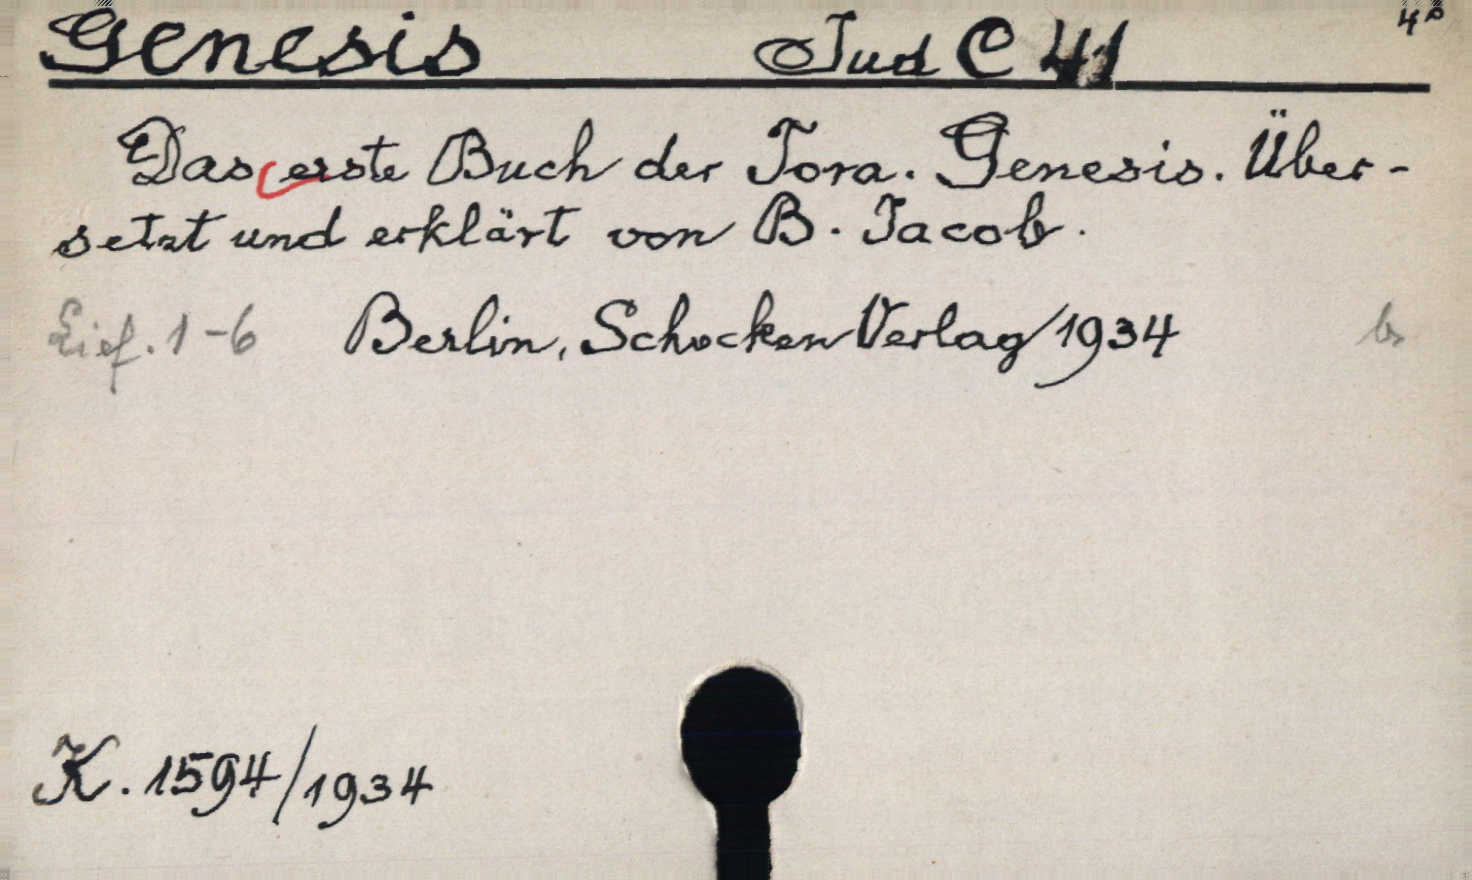 Genesis Jud C 41 4°
Das erste Buch der Tora. Genesis. Über-
setzt und erklärt von B. Jacob.
Lief. 1-6 Berlin, Schocken Verlag 1934
K. 1594/1934